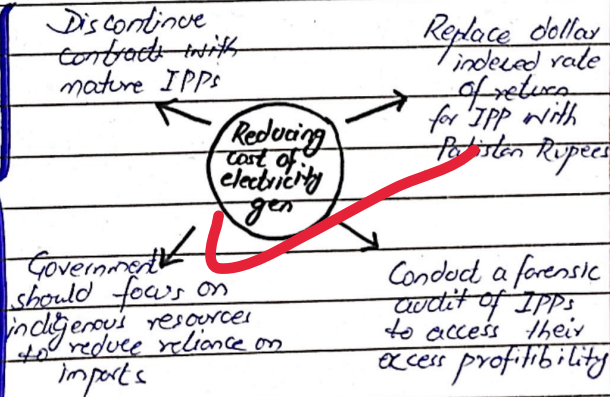 Discontinue
contracts with
mature IPPs
Replace dollar
indexed rate
of return
for IPP with
Pakistan Rupees
Reducing
cost of
electricity
gen
Government
should focus on
indigenous resources
to reduce reliance on
imports
Conduct a forensic
audit of IPPs
to access their
access profitibility